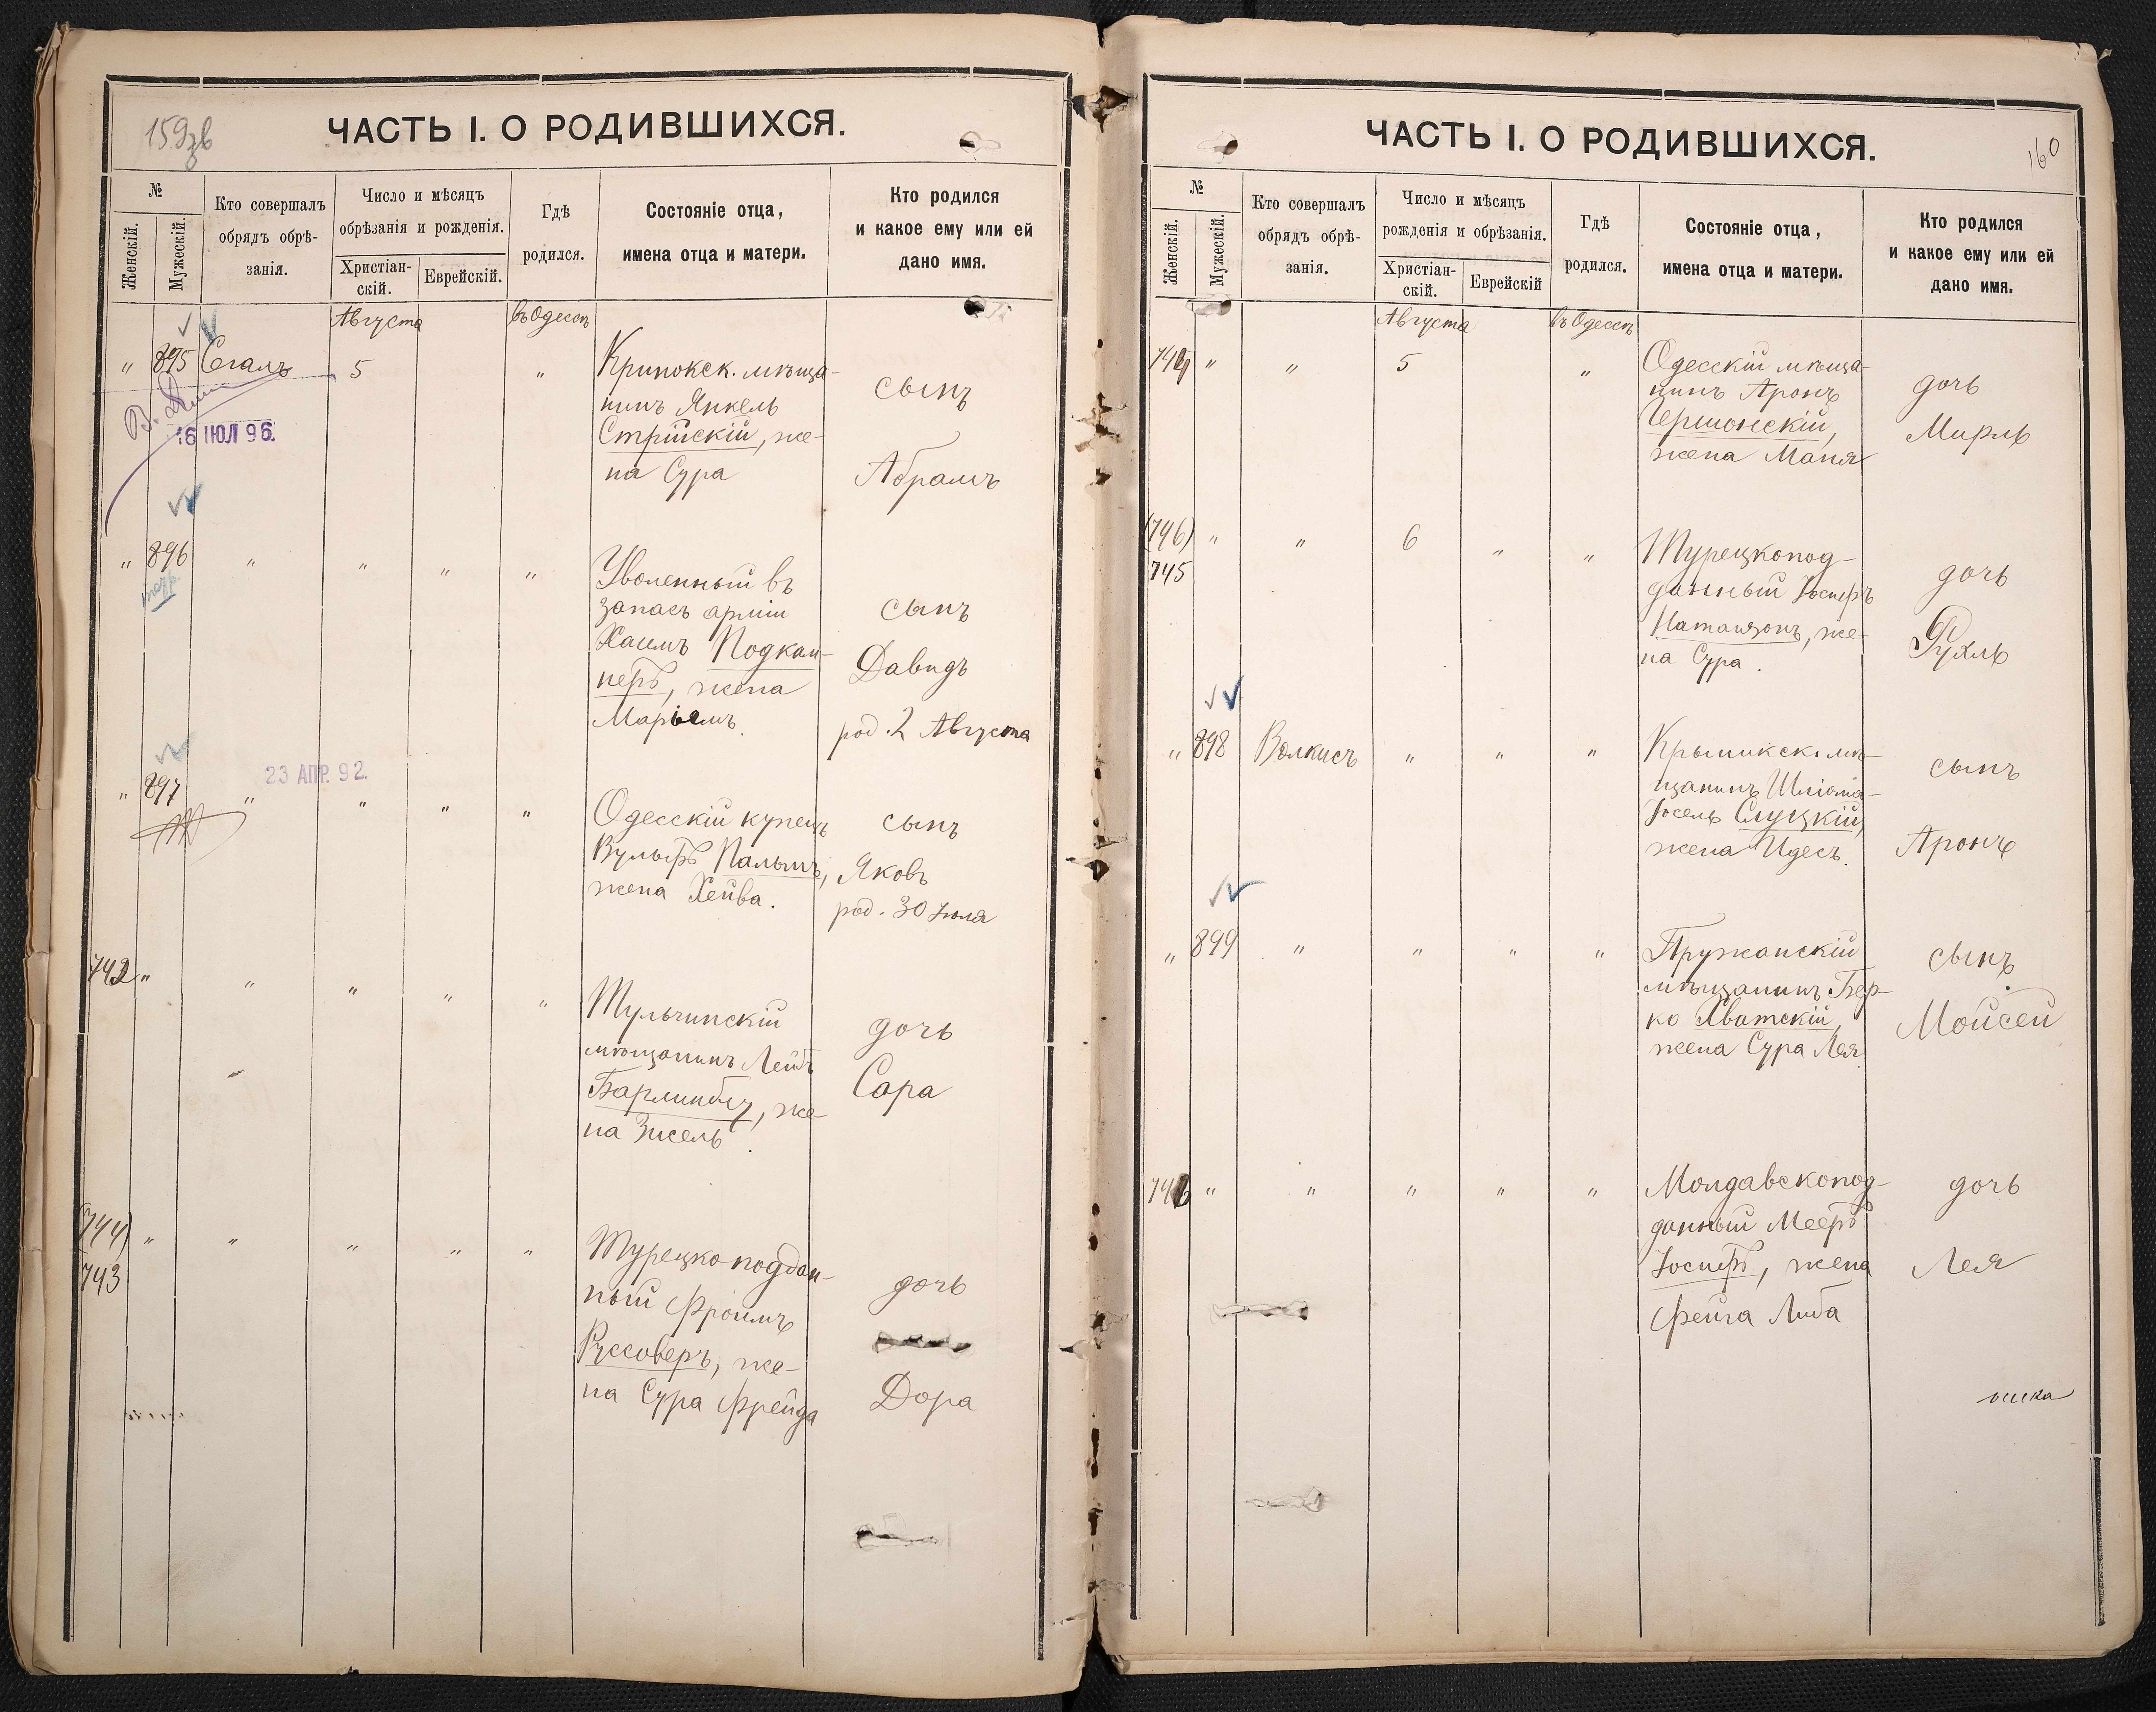 159 зв
ЧАСТЬ I. О РОДИВШИХСЯ.
№
Женскій.
Мужескій.
Кто совершалъ
обрядъ обрѣ-
занія.
Число и мѣсяцъ
обрѣзанія и рожденія.
Христіан-
скій.
Еврейскій.
Гдѣ
родился.
Состояніе отца,
имена отца и матери.
Кто родился
и какое ему или ей
дано имя.
Августа
въ Одессѣ
" 895 Сегалъ 5 "
Кринокск. мѣща-
нинъ Янкель
Стрійскій, же-
на Сура
сынъ
Абрамъ
16 ІЮЛ 96.
" 896 " " " "
Уволенный въ
запасъ арміи
Хаимъ Подкам-
неръ, жена
Марьямъ.
сынъ
Давидъ
род. 2 Августа
" 897 " " " "
23 АПР. 92.
Одесскій купецъ
Вульфъ Пальтъ,
жена Хейва.
сынъ
Яковъ
род. 30 Іюля
742 " " " " "
Тульчинскій
мѣщанинъ Лейбъ
же-
на Зисель.
дочь
Сара
(744) " " " " "
743
Турецкоподдан-
ный Фроимъ
Руссоверъ, же-
на Сура Фрейда
дочь
Дора
160
ЧАСТЬ I. О РОДИВШИХСЯ.
№
Женскій.
Мужескій.
Кто совершалъ
обрядъ обрѣ-
занія.
Число и мѣсяцъ
рожденія и обрѣзанія.
Христіан-
скій.
Еврейскій
Гдѣ
родился.
Состояніе отца,
имена отца и матери.
Кто родился
и какое ему или ей
дано имя.
Августа
въ Одессѣ
744 " " 5 "
Одесскій мѣща-
нинъ Аронъ
Чершонскій,
жена Маня
дочь
Мирль
(746) " " 6 " "
745
Турецкопод-
данный Іосифъ
Натанзонъ, же-
на Сура.
дочь
Рухль
" 898 Волкисъ " " "
Крыникск. мѣ-
щанинъ Шліома-
Іосель Слуцкій,
жена Идесъ.
сынъ
Аронъ
" 899 " " " "
Пружанскій
мѣщанинъ Бер-
ко Хватскій,
жена Сура Лея.
сынъ
Мойсей
746 " " " " "
Молдавскопод-
данный Мееръ
Іосифъ, жена
Фейга Либа
дочь
Лея